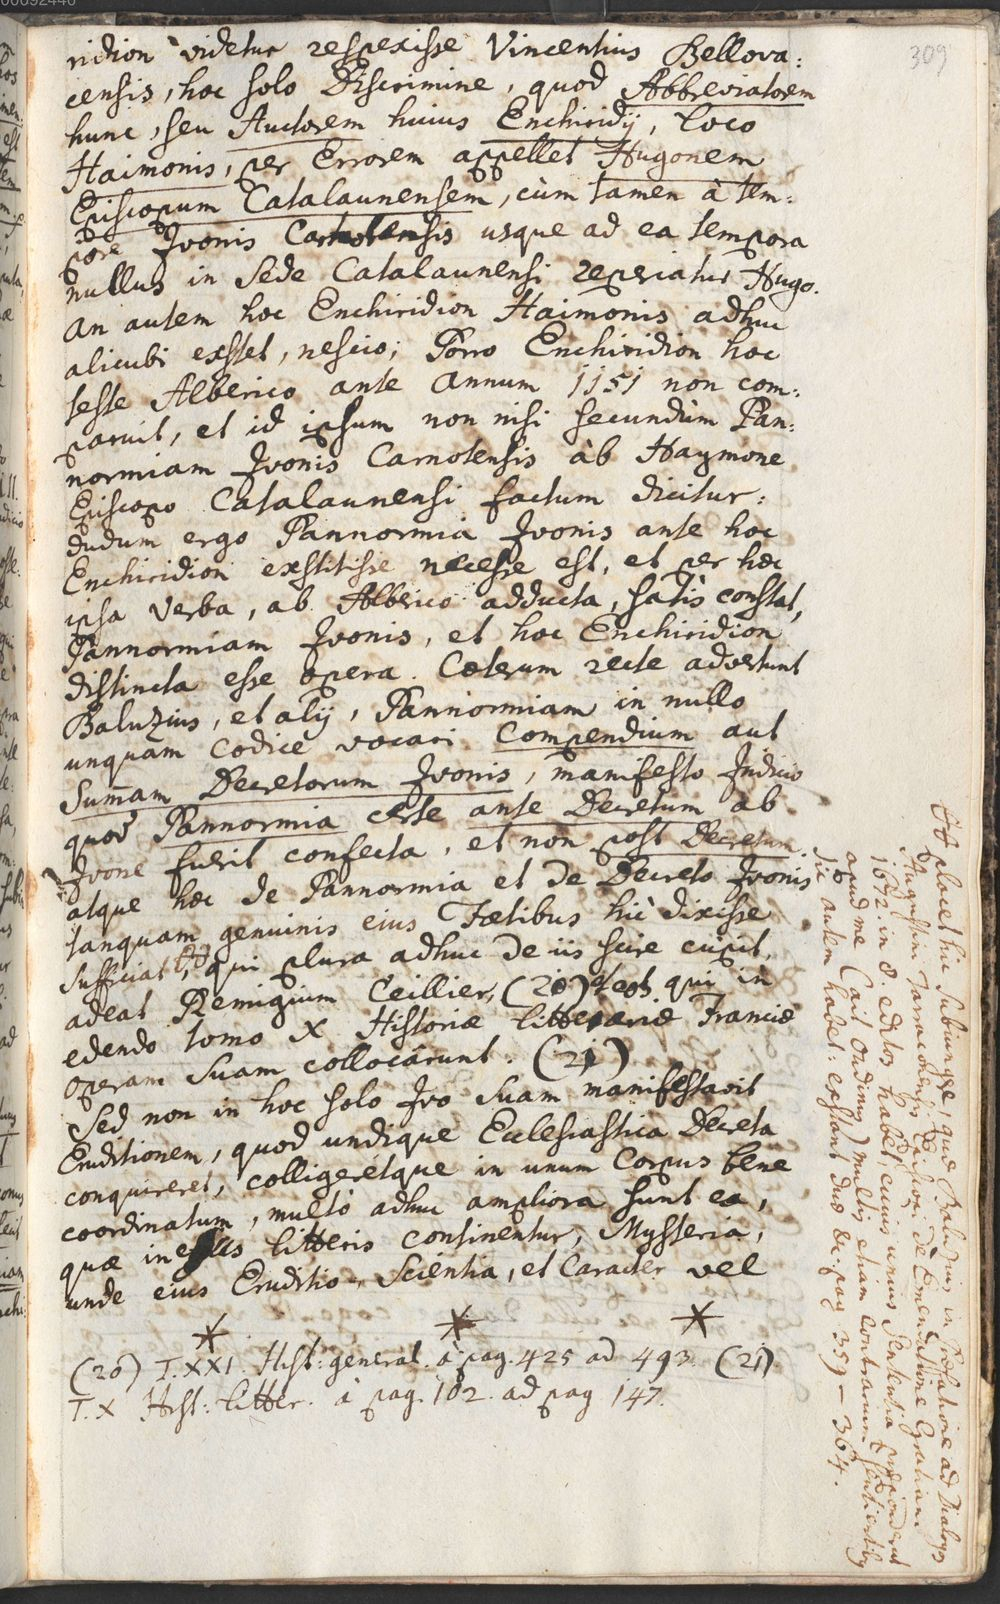 309
ridion videtur respexisse Vincentius Bellova:
censis, hoc solo Discrimine, quod Abbreviatorem
hunc, seu Auctorem huius Enchiridij, loco
Haimonis, per Errorem appellet Hugonem
Episcopum Catalaunensem, cùm tamen à tem:
pore Ivonis Carnotensis usque ad ea tempora
nullus in Sede Catalaunensi reperiatur Hugo.
An autem hoc Enchiridion Haimonis adhuc
alicubi exstet, nescio; Porro Enchiridion hoc
teste Alberico ante Annum 1151 non com:
paruit, et id ipsum non nisi secundùm Pan:
normiam Ivonis Carnotensis àb Haymone
Episcopo Catalaunensi factum dicitur:
dudum ergo Pannormia Ivonis ante hoc
Enchiridion exstitisse necesse est, et per hæc
ipsa verba, ab Alberico adducta, satis constat,
Pannormiam Ivonis, et hoc Enchiridion
distincta esse opera. Cæterum recte advertunt
Baluzius, et alij, Pannormiam in nullo
unquam Codice vocari Compendium aut
Sumam Decretorum Ivonis, manifesto Indicio
quod Pannormia ante Decretum ab
Ivone fuerit confecta, et non post Decretum
atque hæc de Pannormia et de Decreto Ivonis
tanquam genuinis eius Fætibus hìc dixisse
sufficiat, qui plura adhuc de iis scire cupit,
adeat Remigium Ceillier, (20) qui in
edendo tomo X Historiæ litterariæ Franciæ
operam suam collocârunt. (21)
Sed non in hoc solo Ivo suam manifestavit
Eruditionem, quod undique Ecclesiastica Decreta
conquireret, colligerétque in unum Corpus bene
coordinatum, multò adhuc ampliora sunt ea,
quæ in litteris continentur, Mysteria,
unde eius Eruditio, Scientia, et Caracter vel
(20) T. XXI. Hist: general. à pag. 425 ad 493. (21)
T. X Hist: litter. à pag. 102. ad pag 147.
placet hic subiungere, quæ Baluzius in Præfatione ad Dialogos
Augustini Tarraconensis de Emendatione Gratiani
1672. in 8. editos habet, cuius unius Sententia
apud me (ait Oudinus) multis etiam contrarium sentientibus
sic autem habet: exstant duæ pag 359 - 364.